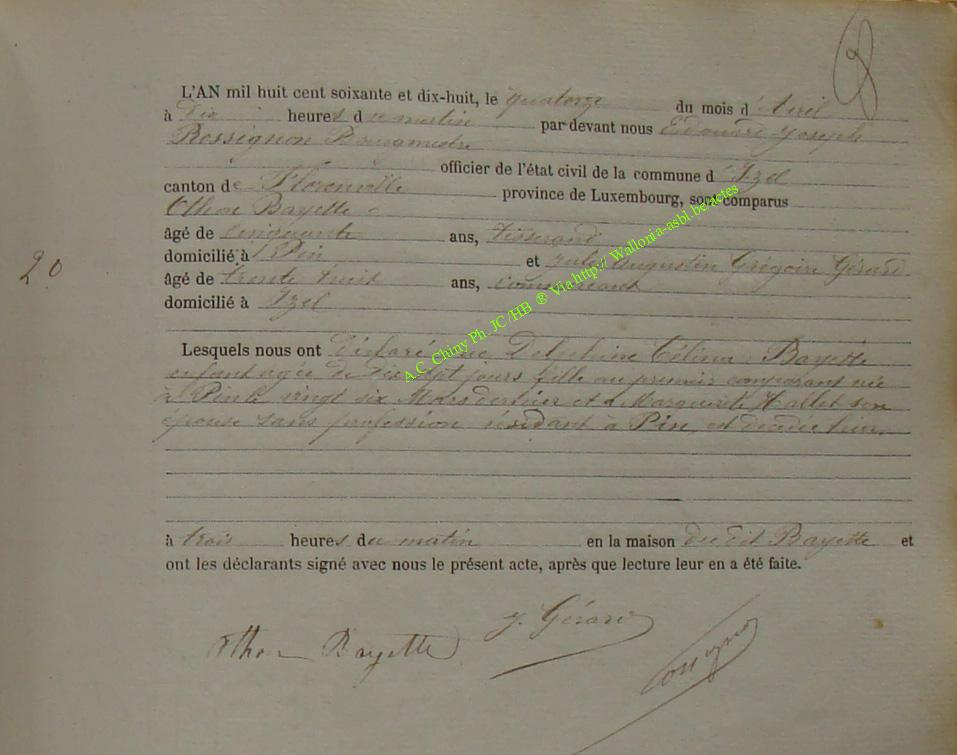 L'AN mil huit cent soixante et dix-huit, le quatorze du mois d'Avril
à dix heures du matin par devant nous Edouard Joseph
Rossignon Bourgmestre
officier de l'état civil de la commune d'Izel
canton de Florenville province de Luxembourg, sont comparus
Othon Bayette
âgé de cinquante ans, Tisserand
domicilié à Pin et Jules Augustin Grégoire Gérard
âgé de trente huit ans,
domicilié à Izel
20
Lesquels nous ont déclaré que Delphine Célina Bayette
enfant agée de dix sept jours fille au premier comparant née
à Pin le vingt six Mars dernier et d Marguerite Hallet son
épouse sans profession résidant à Pin, est décédée hier
à trois heures du matin en la maison du dit Bayette et
ont les déclarants signé avec nous le présent acte, après que lecture leur en a été faite.
Othon Bayette
J. Gérard
A.C. Chiny Ph. JC/HB ® Via http:// Wallonia-asbl.be/actes